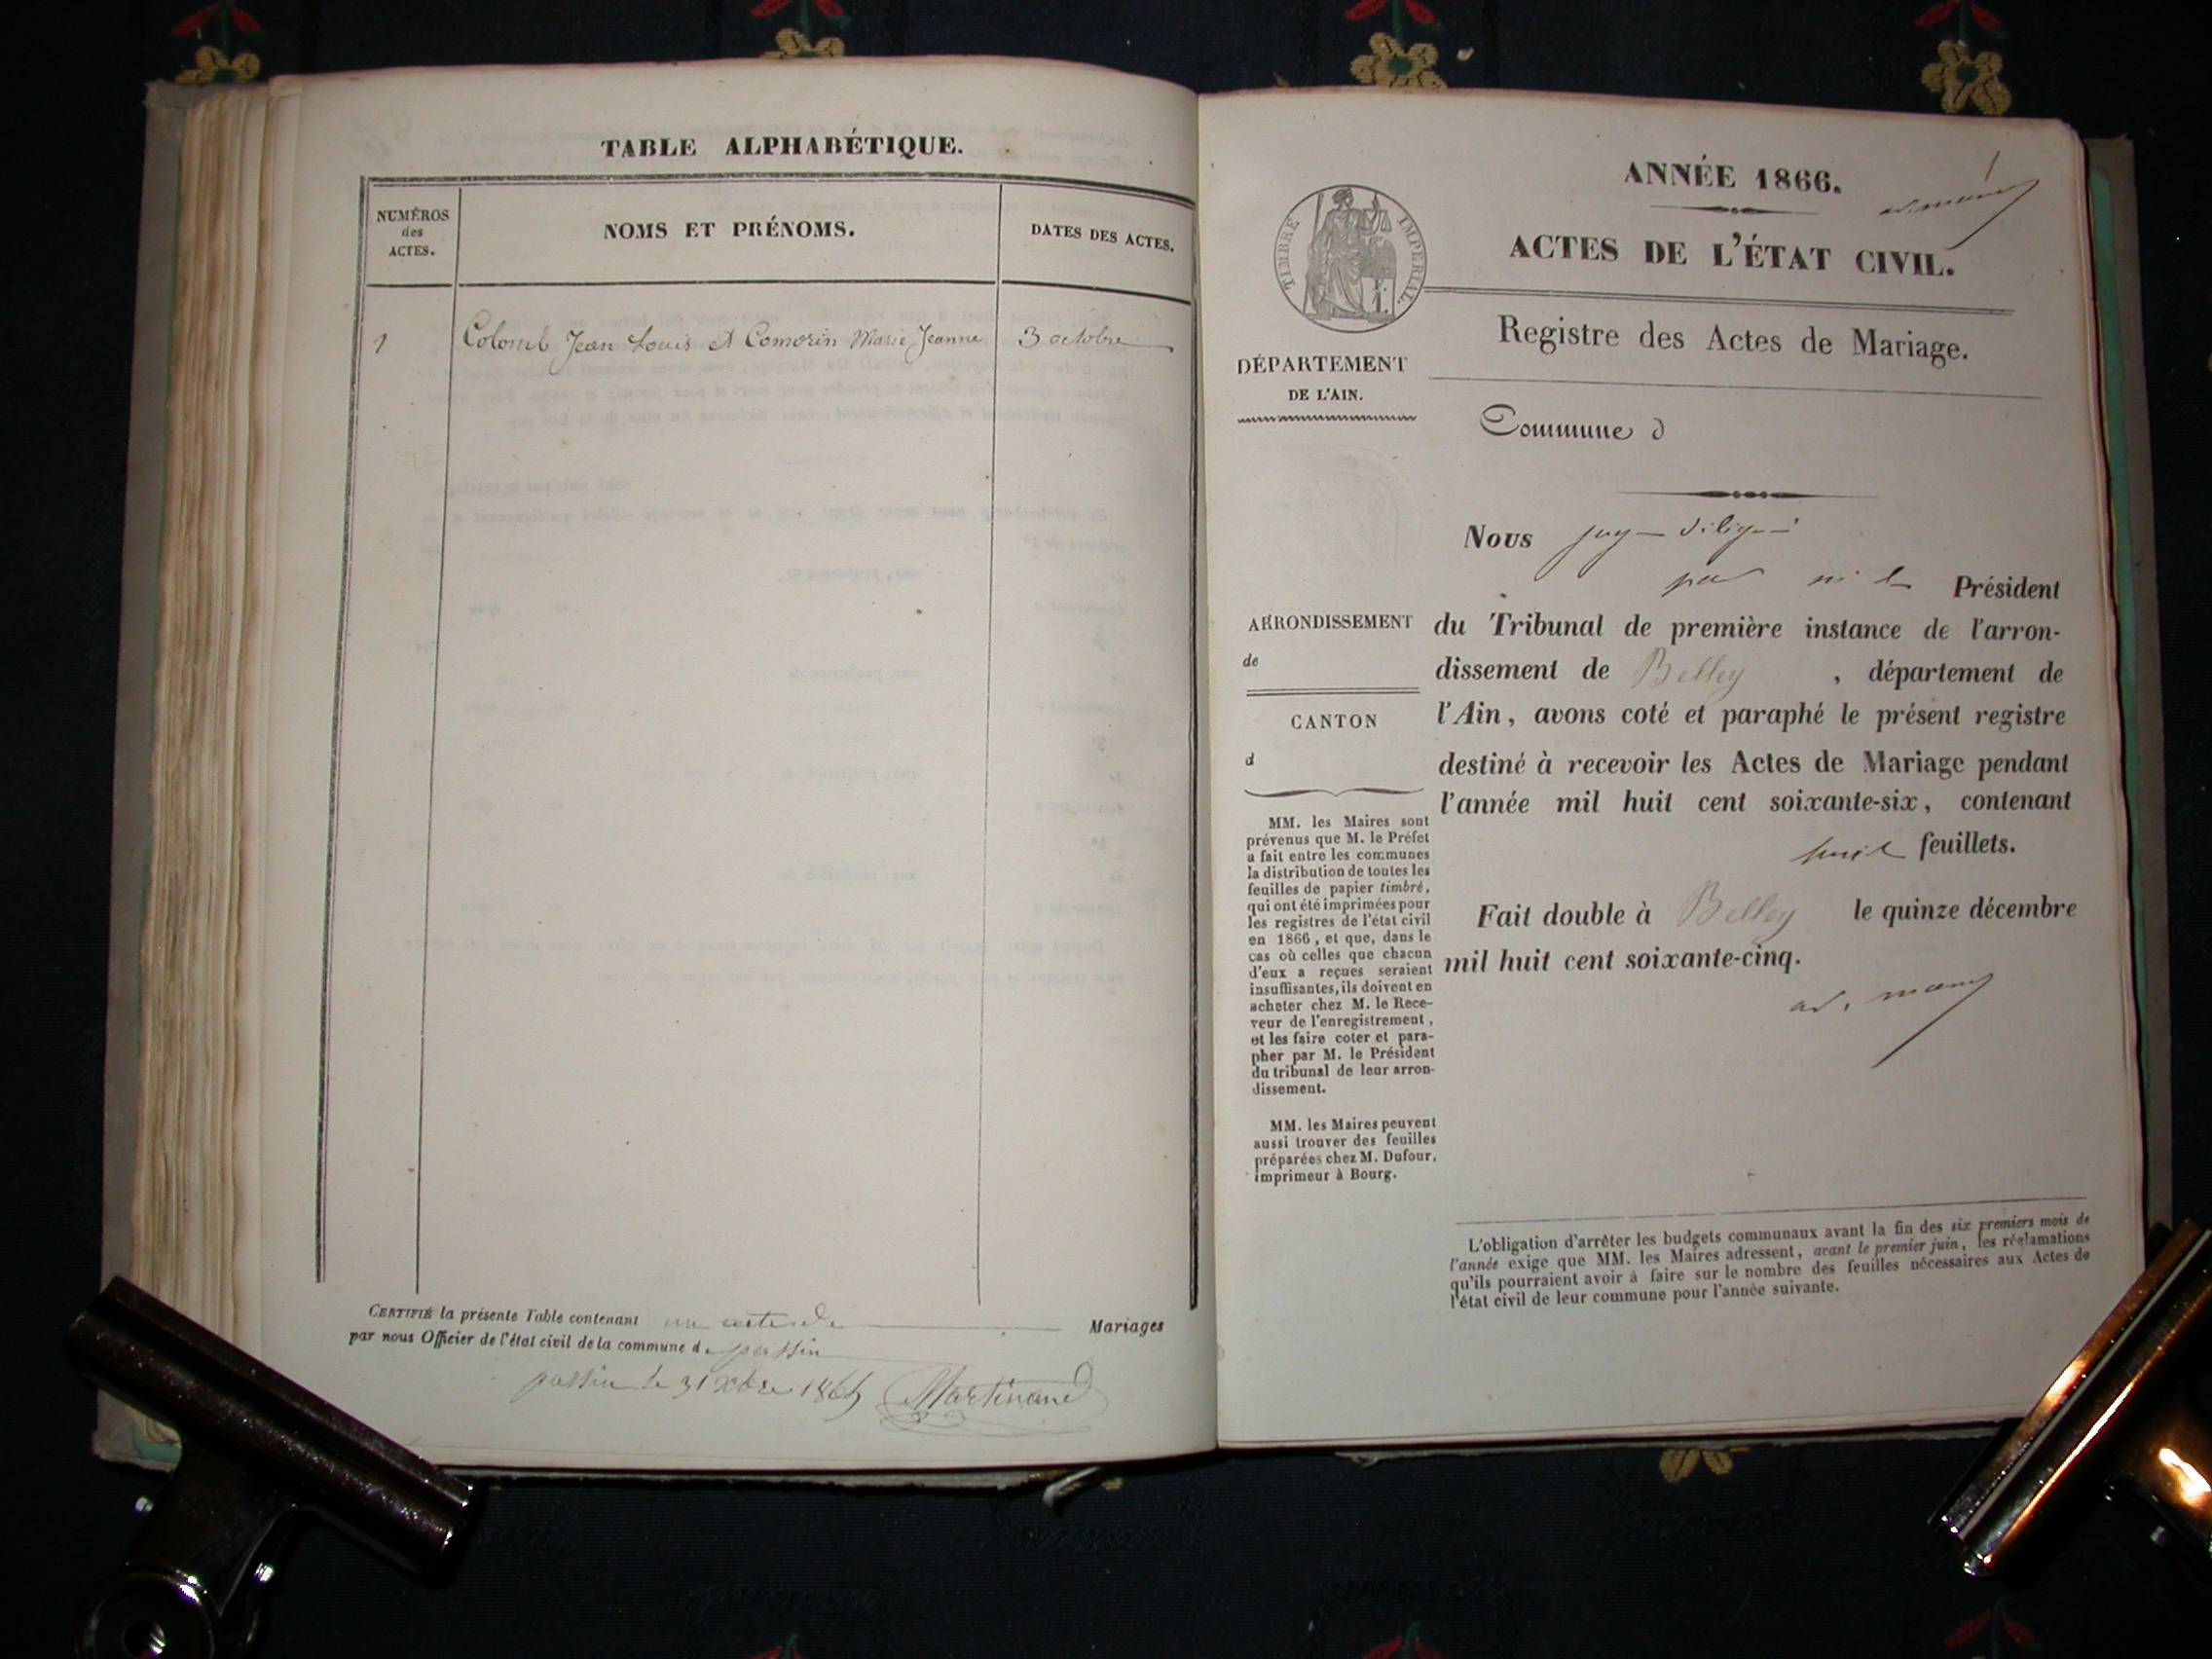 TABLE ALPHABÉTIQUE.
NUMÉROS
des
ACTES.
NOMS ET PRÉNOMS.
DATES DES ACTES.
1 Colomb Jean Louis et Comorin Marie Jeanne 3 octobre
CERTIFIÉ la présente Table contenant un acte de Mariages
par nous Officier de l'état civil de la commune de passin
passin le 31 Xbre 1865 Martinand
ANNÉE 1866.
TIMBRE IMPERIAL.
ACTES DE L'ÉTAT CIVIL.
Registre des Actes de Mariage.
DÉPARTEMENT
DE L'AIN.
Commune d
Nous juge
Président
ARRONDISSEMENT
de
CANTON
d
du Tribunal de première instance de l'arron-
dissement de Belley , département de
l'Ain, avons coté et paraphé le présent registre
destiné à recevoir les Actes de Mariage pendant
l'année mil huit cent soixante-six, contenant
huit feuillets.
Fait double à Belley le quinze décembre
mil huit cent soixante-cinq.
MM. les Maires sont
prévenus que M. le Préfet
a fait entre les communes
la distribution de toutes les
feuilles de papier timbré,
qui ont été imprimées pour
les registres de l'état civil
en 1866, et que, dans le
cas où celles que chacun
d'eux a reçues seraient
insuffisantes, ils doivent en
acheter chez M. le Rece-
veur de l'enregistrement,
et les faire coter et para-
pher par M. le Président
du tribunal de leur arron-
dissement.
MM. les Maires peuvent
aussi trouver des feuilles
préparées chez M. Dufour,
imprimeur à Bourg.
L'obligation d'arrêter les budgets communaux avant la fin des six premiers mois de
l'année exige que MM. les Maires adressent, avant le premier juin, les réclamations
qu'ils pourraient avoir à faire sur le nombre des feuilles nécessaires aux Actes de
l'état civil de leur commune pour l'année suivante.